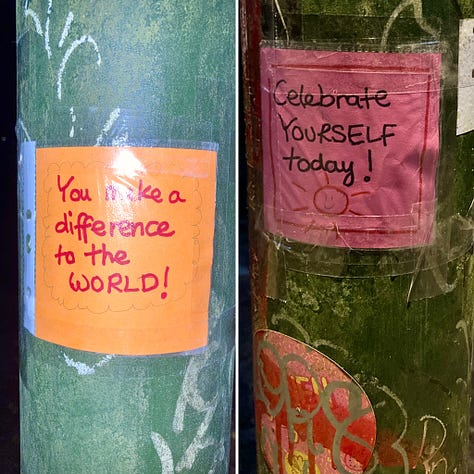 You make a
difference
to the
WORLD!
Celebrate
YOURSELF
today!